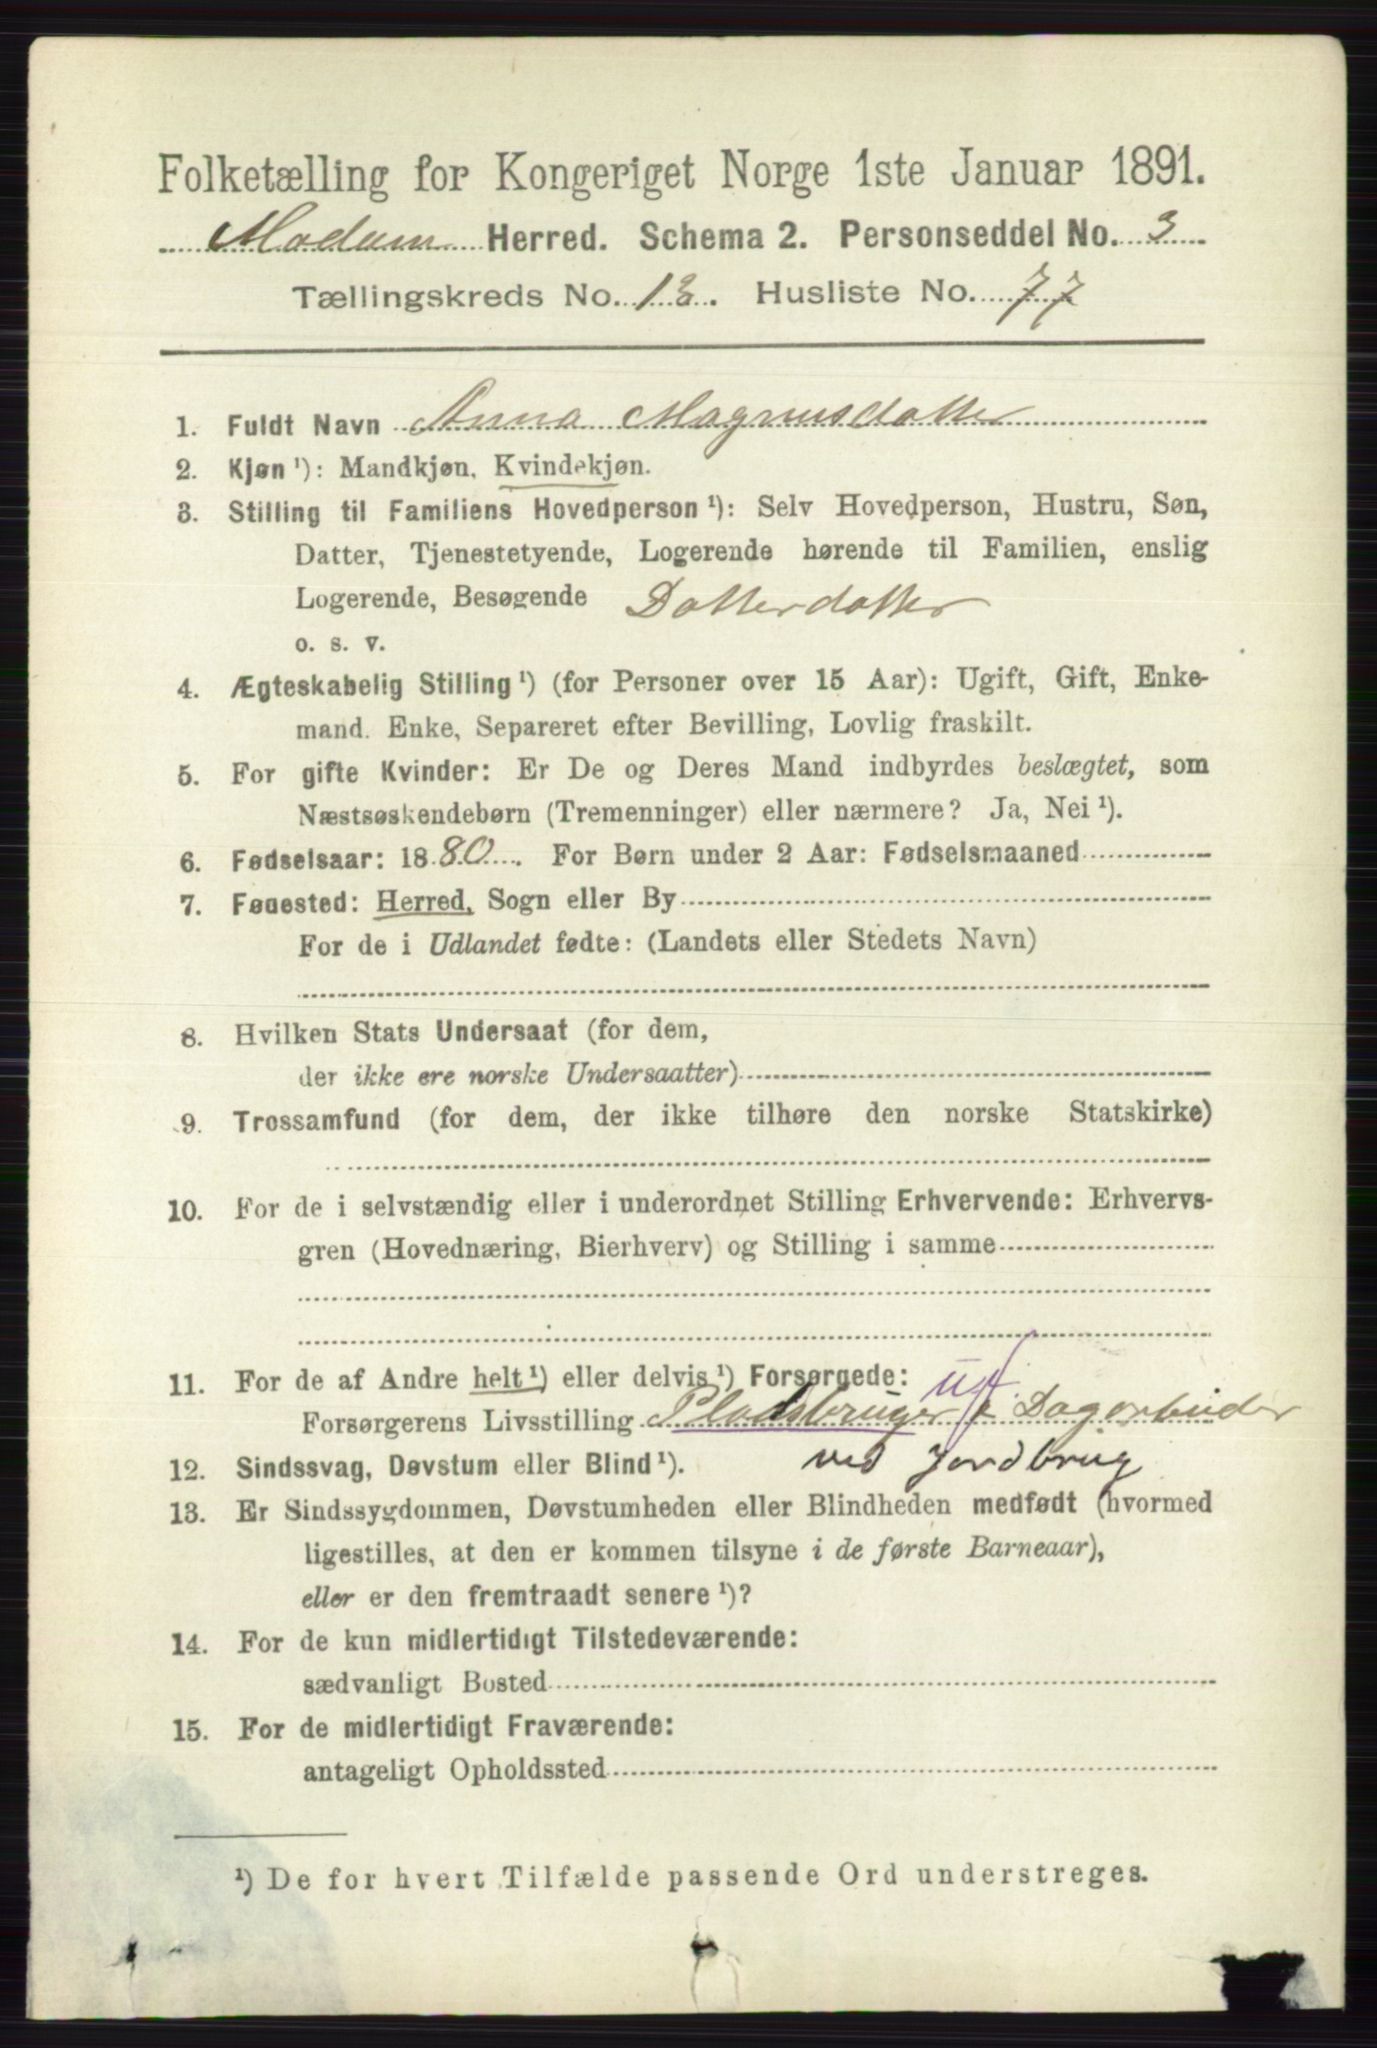 Folketælling for Kongeriget Norge 1ste Januar 1891.
Modum Herred. Schema 2. Personseddel No. 3
Tællingskreds No. 13. Husliste No. 77
1. Fuldt Navn Anna Magnusdatter
2. Kjøn ¹): Mandkjøn, Kvindekjøn.
3. Stilling til Familiens Hovedperson ¹): Selv Hovedperson, Hustru, Søn,
Datter, Tjenestetyende, Logerende hørende til Familien, enslig
Logerende, Besøgende Datterdatter
o. s. v.
4. Ægteskabelig Stilling ¹) (for Personer over 15 Aar): Ugift, Gift, Enke-
mand. Enke, Separeret efter Bevilling, Lovlig fraskilt.
5. For gifte Kvinder: Er De og Deres Mand indbyrdes beslægtet, som
Næstsøskendebørn (Tremenninger) eller nærmere? Ja, Nei ¹).
6. Fødselsaar: 1880. For Børn under 2 Aar: Fødselsmaaned
7. Fødested: Herred, Sogn eller By
For de i Udlandet fødte: (Landets eller Stedets Navn)
8. Hvilken Stats Undersaat (for dem,
der ikke ere norske Undersaatter)
9. Trossamfund (for dem, der ikke tilhøre den norske Statskirke)
10. For de i selvstændig eller i underordnet Stilling Erhvervende: Erhvervs-
gren (Hovednæring, Bierhverv) og Stilling i samme
11. For de af Andre helt ¹) eller delvis ¹) Forsørgede:
Forsørgerens Livsstilling Pladsbruger & Dagarbeider
12. Sindssvag, Døvstum eller Blind ¹). ved Jordbrug
13. Er Sindssygdommen, Døvstumheden eller Blindheden medfødt (hvormed
ligestilles, at den er kommen tilsyne i de første Barneaar),
eller er den fremtraadt senere ¹)?
14. For de kun midlertidigt Tilstedeværende:
sædvanligt Bosted
15. For de midlertidigt Fraværende:
antageligt Opholdssted
¹) De for hvert Tilfælde passende Ord understreges.